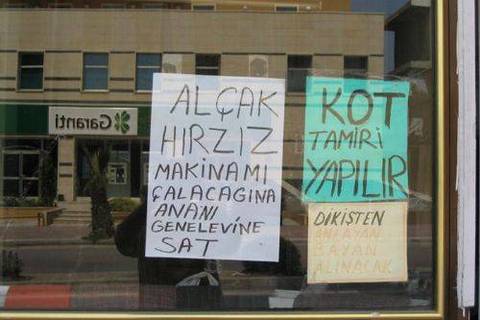 Garanti
ALÇAK
HIRZIZ
MAKİNAMI
ÇALACAGINA
ANANI
GENELEVİNE
SAT
KOT
TAMİRİ
YAPILIR
DİKİSTEN
ANLAYAN
BAYAN
ALINACAK